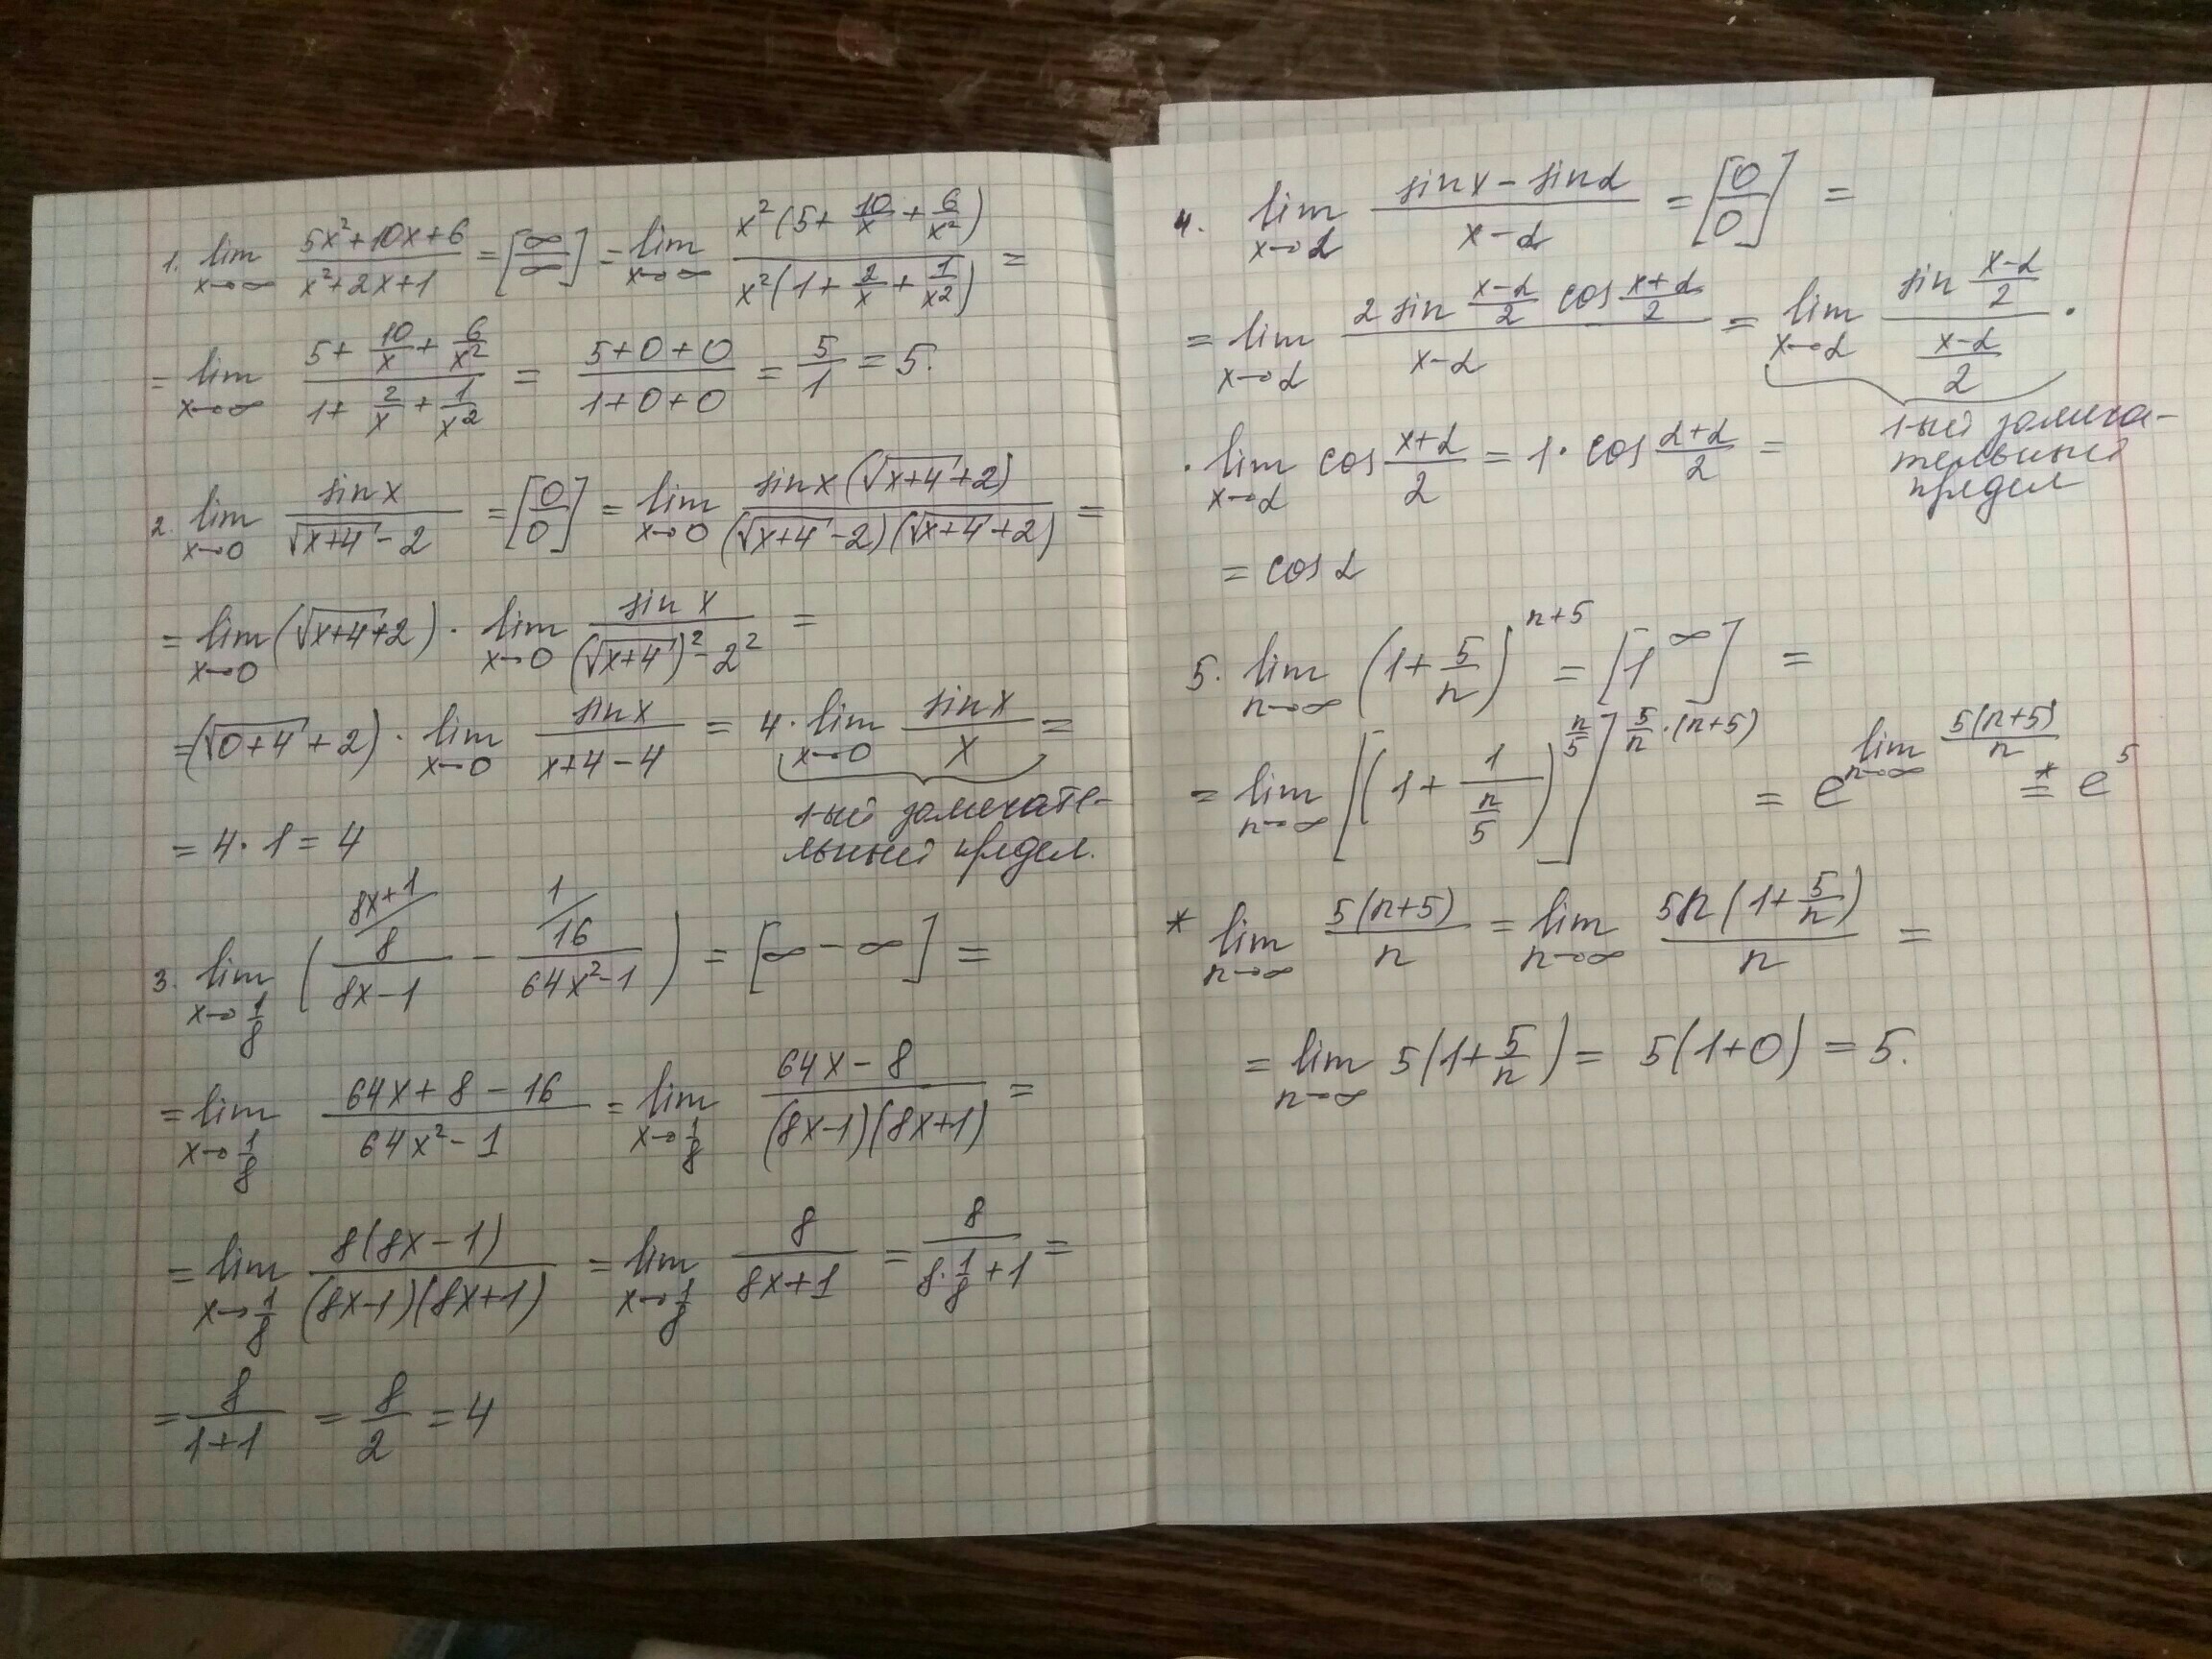 1. lim x→∞ (5x²+10x+6)/(x²+2x+1) = [∞/∞] = lim x→∞ x²(5+10/x+6/x²)/x²(1+2/x+1/x²) =
= lim x→∞ (5+10/x+6/x²)/(1+2/x+1/x²) = (5+0+0)/(1+0+0) = 5/1 = 5.
2. lim x→0 sinx/(√(x+4)-2) = [0/0] = lim x→0 sinx(√(x+4)+2)/(√(x+4)-2)(√(x+4)+2) =
= lim x→0 (√(x+4)+2) · lim x→0 sin x/((√(x+4))²-2²) =
=(√(0+4)+2) · lim x→0 sinx/(x+4-4) = 4· lim x→0 sinx/x =
1-ый замечате-
льный предел.
= 4·1 = 4
3. lim x→1/8 ( 8 ⁄8x+1 /(8x-1) - 16 ⁄1 /(64x²-1) ) = [∞-∞] =
= lim x→1/8 (64x+8-16)/(64x²-1) = lim x→1/8 (64x-8)/(8x-1)(8x+1) =
= lim x→1/8 8(8x-1)/(8x-1)(8x+1) = lim x→1/8 8/(8x+1) = 8/(8·1/8+1) =
= 8/(1+1) = 8/2 = 4
4. lim x→α (sinx-sinα)/(x-α) = [0/0] =
= lim x→α (2 sin (x-α)/2 cos (x+α)/2)/(x-α) = lim x→α (sin (x-α)/2)/((x-α)/2) ·
· lim x→α cos (x+α)/2 = 1· cos (α+α)/2 =
1-ый замеча-
тельный
предел
= cos α
5. lim n→∞ (1+5/n)^(n+5) = [1^∞] =
= lim n→∞ [(1+1/(n/5))^(n/5)]^(5/n·(n+5)) = e^(lim n→∞ 5(n+5)/n) *= e^5
* lim n→∞ 5(n+5)/n = lim n→∞ 5n(1+5/n)/n =
= lim n→∞ 5(1+5/n) = 5(1+0) = 5.